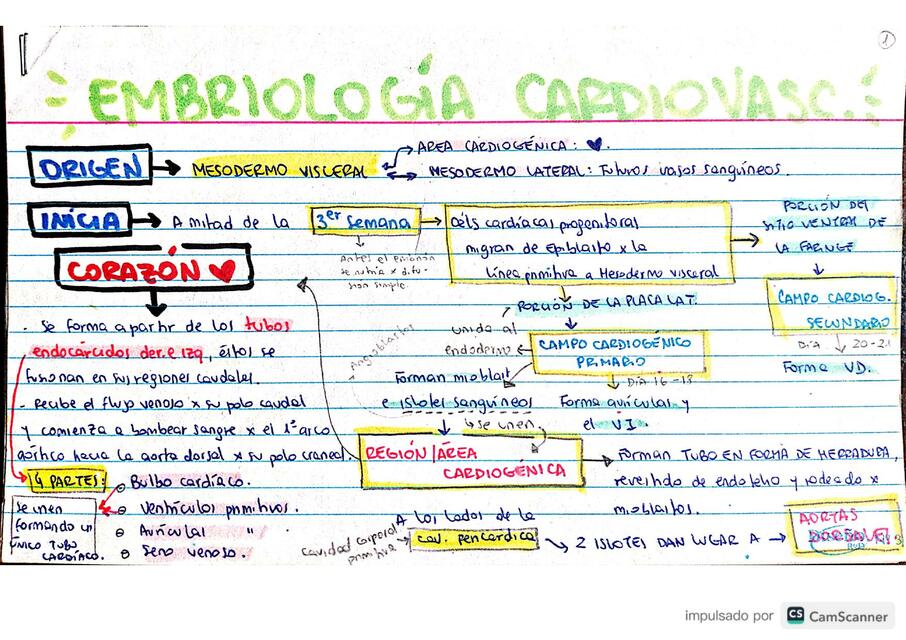 1
EMBRIOLOGÍA CARDIOVASC.
ORIGEN → MESODERMO VISCERAL
AREA CARDIOGÉNICA: ♥.
MESODERMO LATERAL: Futuros vasos sanguíneos.
INICIA → A mitad de la 3er semana →
Antes el embrión
se nutría x difu-
sión simple.
Céls cardíacas progenitoras
migran de Epiblasto x la
línea primitiva a Mesodermo visceral
PORCIÓN DEL
SITIO VENTRAL DE
LA FARINGE
CAMPO CARDIOG.
SECUNDARIO
DÍA 20-21
Forma VD.
PORCIÓN DE LA PLACA LAT.
CAMPO CARDIOGÉNICO
PRIMARIO
DÍA 16-18
Forma aurículas y
el VI.
unida al
endodermo
Forman mioblast
e islotes sanguíneos
se unen
Angioblastos
CORAZÓN ♥
- Se forma a partir de los tubos
endocárcidos der. e izq, éstos se
fusionan en sus regiones caudales.
- Recibe el flujo venoso x su polo caudal
y comienza a bombear sangre x el 1° arco
aórtico hacia la aorta dorsal x su polo craneal.
4 PARTES:
Bulbo cardíaco.
Ventrículos primitivos.
Aurículas "
Seno venoso.
Se unen
formando un
ÚNICO TUBO
CARDÍACO.
REGIÓN/ÁREA
CARDIOGÉNICA
→ Forman TUBO EN FORMA DE HERRADURA,
revestido de endotelio y rodeado x
mioblastos.
A los lados de la
cav. pericardica
cavidad corporal
primitiva
2 ISLOTES DAN LUGAR A →
AORTAS
DORSALES
impulsado por CS CamScanner